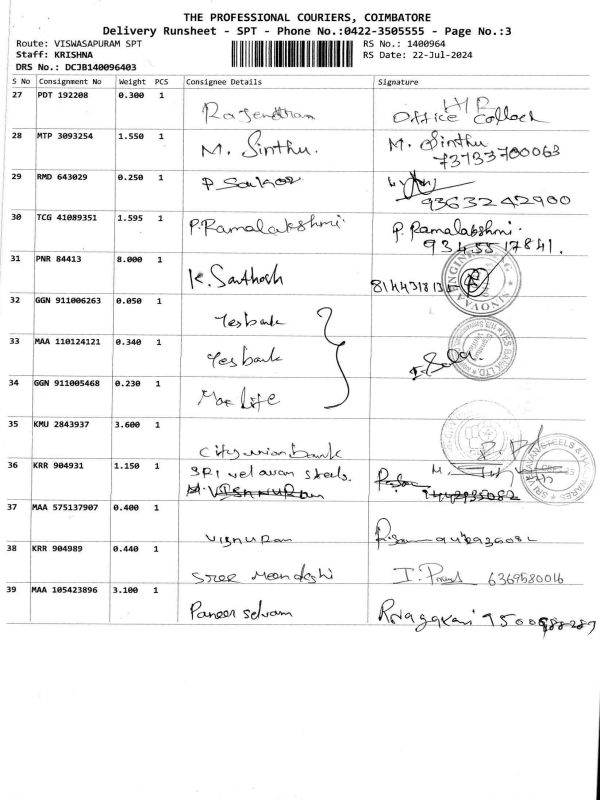 THE PROFESSIONAL COURIERS, COIMBATORE
Delivery Runsheet - SPT - Phone No.:0422-3505555 - Page No.:3
Route: VISWASAPURAM SPT
Staff: KRISHNA
DRS No.: DCJB140096403
RS No.: 1400964
RS Date: 22-Jul-2024
S No Consignment No Weight PCS Consignee Details Signature
27 PDT 192208 0.300 1 Rajendhran Office
28 MTP 3093254 1.550 1 M. Sinthu. M. Sinthu 73733700063
29 RMD 643029 0.250 1 9363242900
30 TCG 41089351 1.595 1 P.Ramalakshmi. P. Ramalakshmi. 9345517841.
31 PNR 84413 8.000 1 K. Santhosh
32 GGN 911006263 0.050 1 Yesbank
33 MAA 110124121 0.340 1 Yesbank
34 GGN 911005468 0.230 1 Max life
35 KMU 2843937 3.600 1 City union bank
36 KRR 904931 1.150 1 SRI velavan steels.
37 MAA 575137907 0.400 1
38 KRR 904989 0.440 1 Sree Meenakshi 6369580016
39 MAA 105423896 3.100 1 Paneer selvam